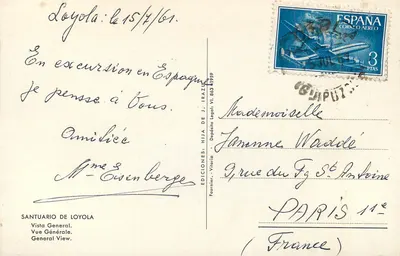 Loyola: le 15/7/61.
En excursion en Espagne
je pense à Vous.
Amitiée
Mme Eisenberge
SANTUARIO DE LOYOLA
Vista General.
Vue Générale.
General View.
EDICIONES: HIJA DE J.
Fournier.-Vitoria - Depósito Legal: VI.
ESPAÑA
CORREO AEREO
3
PTAS
GUIPUZ
Mademoiselle
Jeanne Waddé
9, rue du Fg St Antoine
PARIS 11e
(France)